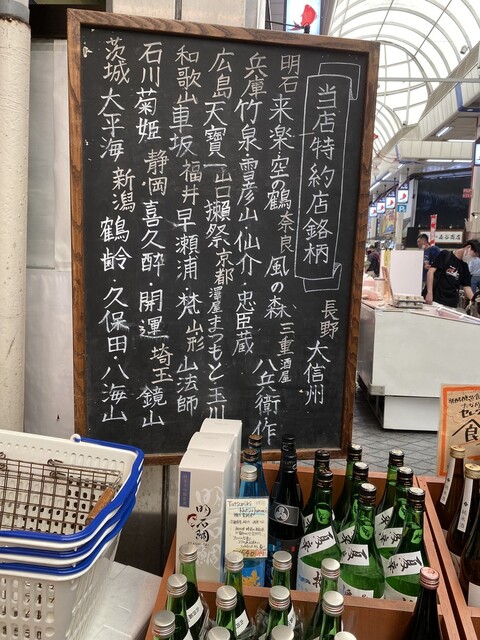 当店特約店銘柄
長野 大信州
明石 来楽・空の鶴 奈良 風の森 三重 酒屋八兵衛 作
兵庫 竹泉・雪彦山・仙介・忠臣蔵
広島 天寶一 山口 獺祭 京都 澤屋まつもと・玉川
和歌山 車坂 福井 早瀬浦・梵 山形 山法師
石川 菊姫 静岡 喜久酔・開運 埼玉 鏡山
茨城 太平海 新潟 鶴齢・久保田・八海山
明石鯛
夏辛
夏辛
夏辛
食